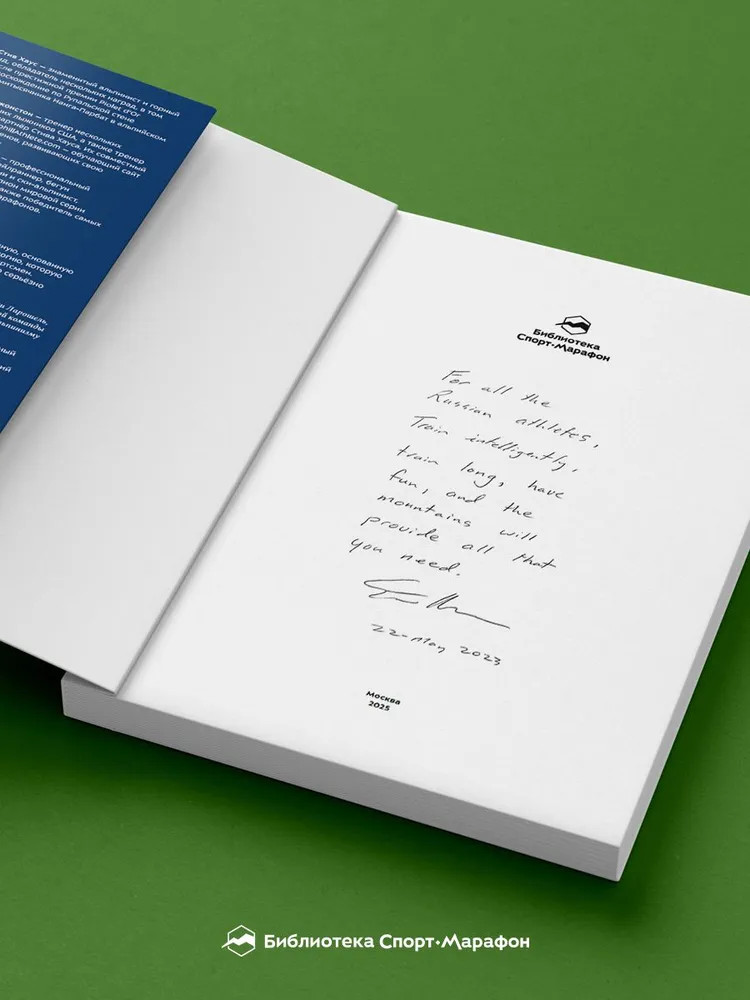 Стив Хаус — знаменитый альпинист и горный
обладатель нескольких наград, в том
престижной премии Piolet d'Or
восхождение по Рупальской стене
Нанга-Парбат в альпийском
тренер нескольких
лыжников США, а также тренер
Стива Хауса. Их совместный
обучающий сайт
развивающих свою
— профессиональный
бегун
и ски-альпинист,
мировой серии
также победитель самых
марафонов.
основанную
которую
серьёзно
Ларошель,
команды
Библиотека
Спорт•Марафон
For all the
Russian athletes,
Train intelligently,
train long, have
fun, and the
mountains will
provide all that
you need.
22-May 2023
Москва
2025
Библиотека Спорт•Марафон